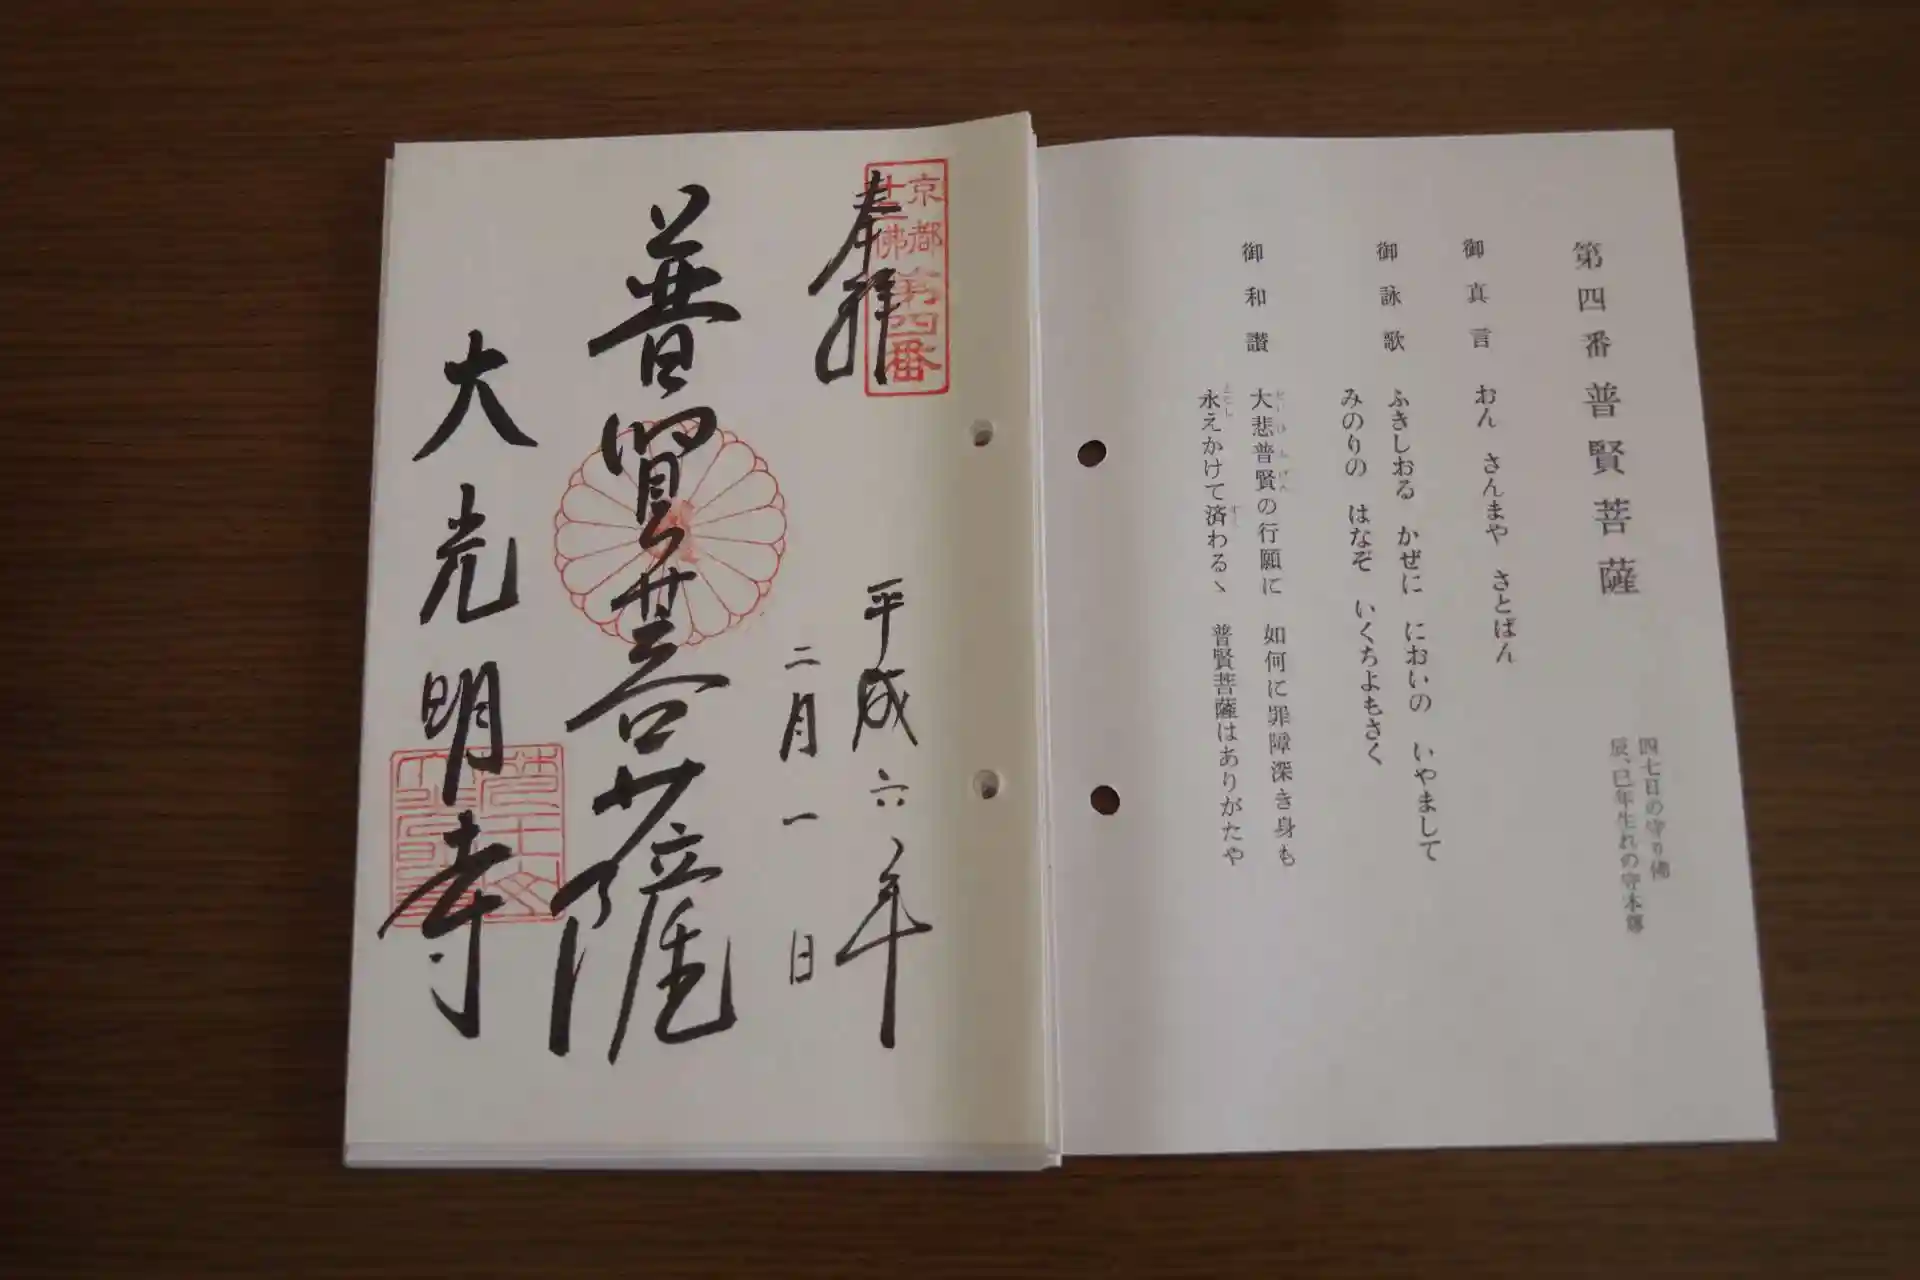 第四番 普賢菩薩
四七日の守り佛
辰、巳年生れの守本尊
御真言 おん さんまや さとばん
御詠歌 ふきしおる かぜに においの いやまして
みのりの はなぞ いくちよもさく
御和讃 大悲普賢の行願に 如何に罪障深き身も
永えかけて済わるヽ 普賢菩薩はありがたや
京都
十三佛
第四番
奉拝
平成六年
二月一日
普賢菩薩
大光明寺